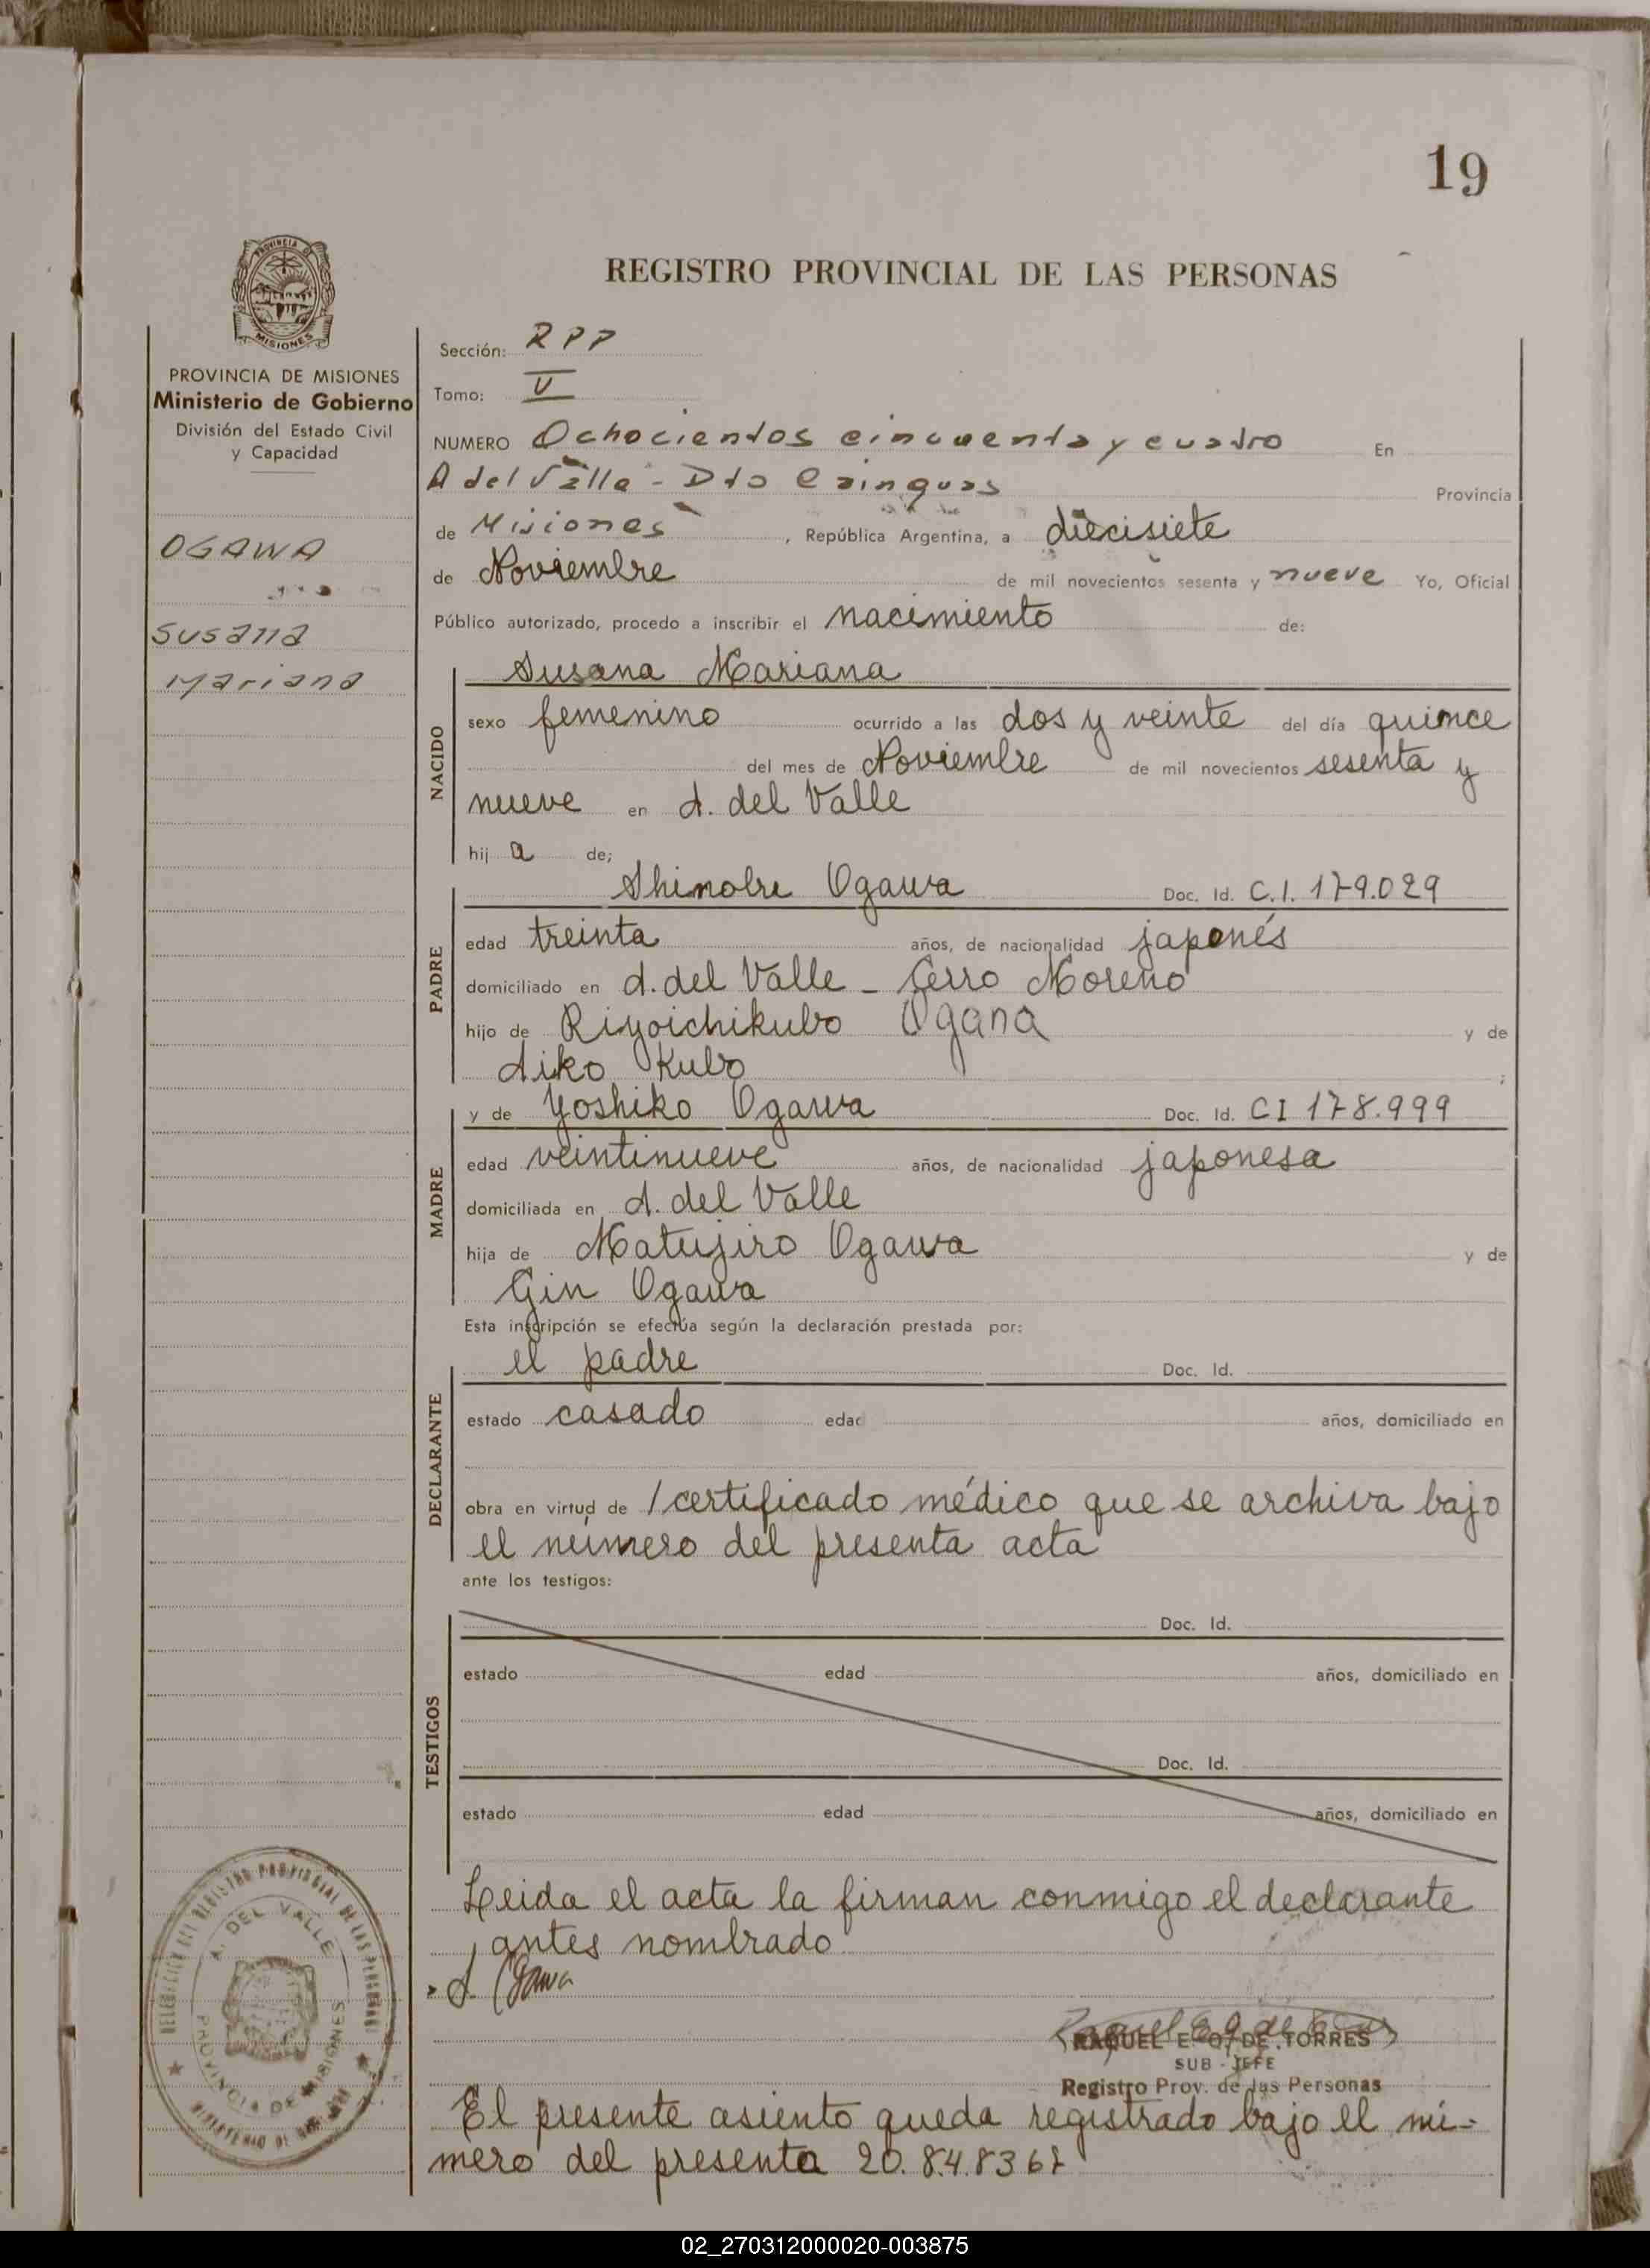 19
REGISTRO PROVINCIAL DE LAS PERSONAS
PROVINCIA DE MISIONES
Ministerio de Gobierno
División del Estado Civil
y Capacidad
OGAWA
Susana
Mariana
Sección: RPP
Tomo: V
NUMERO Ochocientos cincuenta y cuatro En
A del Valle - Dto Cainguas Provincia
de Misiones, República Argentina, a diecisiete
de Noviembre de mil novecientos sesenta y nueve Yo, Oficial
Público autorizado, procedo a inscribir el nacimiento de:
NACIDO
Susana Mariana
sexo femenino ocurrido a las dos y veinte del día quince
del mes de Noviembre de mil novecientos sesenta y
nueve en A. del Valle
hij a de;
PADRE
Shinobu Ogawa Doc. Id. C.I. 179.029
edad treinta años, de nacionalidad japonés
domiciliado en A. del Valle - Cerro Moreno
hijo de Riyoichikubo Ogana y de
Aiko Kubo ;
MADRE
y de Yoshiko Ogawa Doc. Id. CI 178.999
edad veintinueve años, de nacionalidad japonesa
domiciliada en A. del Valle
hija de Matujiro Ogawa y de
Gin Ogawa
Esta inscripción se efectúa según la declaración prestada por:
DECLARANTE
el padre Doc. Id.
estado casado edad años, domiciliado en
obra en virtud de 1 certificado médico que se archiva bajo
el número del presenta acta
ante los testigos:
TESTIGOS
Doc. Id.
estado edad años, domiciliado en
Doc. Id.
estado edad años, domiciliado en
Leida el acta la firman conmigo el declarante
antes nombrado
S. Ogawa
RAQUEL E. O. DE TORRES
SUB - JEFE
Registro Prov. de las Personas
El presente asiento queda registrado bajo el nú-
mero del presenta 20.848367
DELEGACION DEL REGISTRO PROVINCIAL DE LAS PERSONAS
A. DEL VALLE
PROVINCIA DE MISIONES
02_270312000020-003875